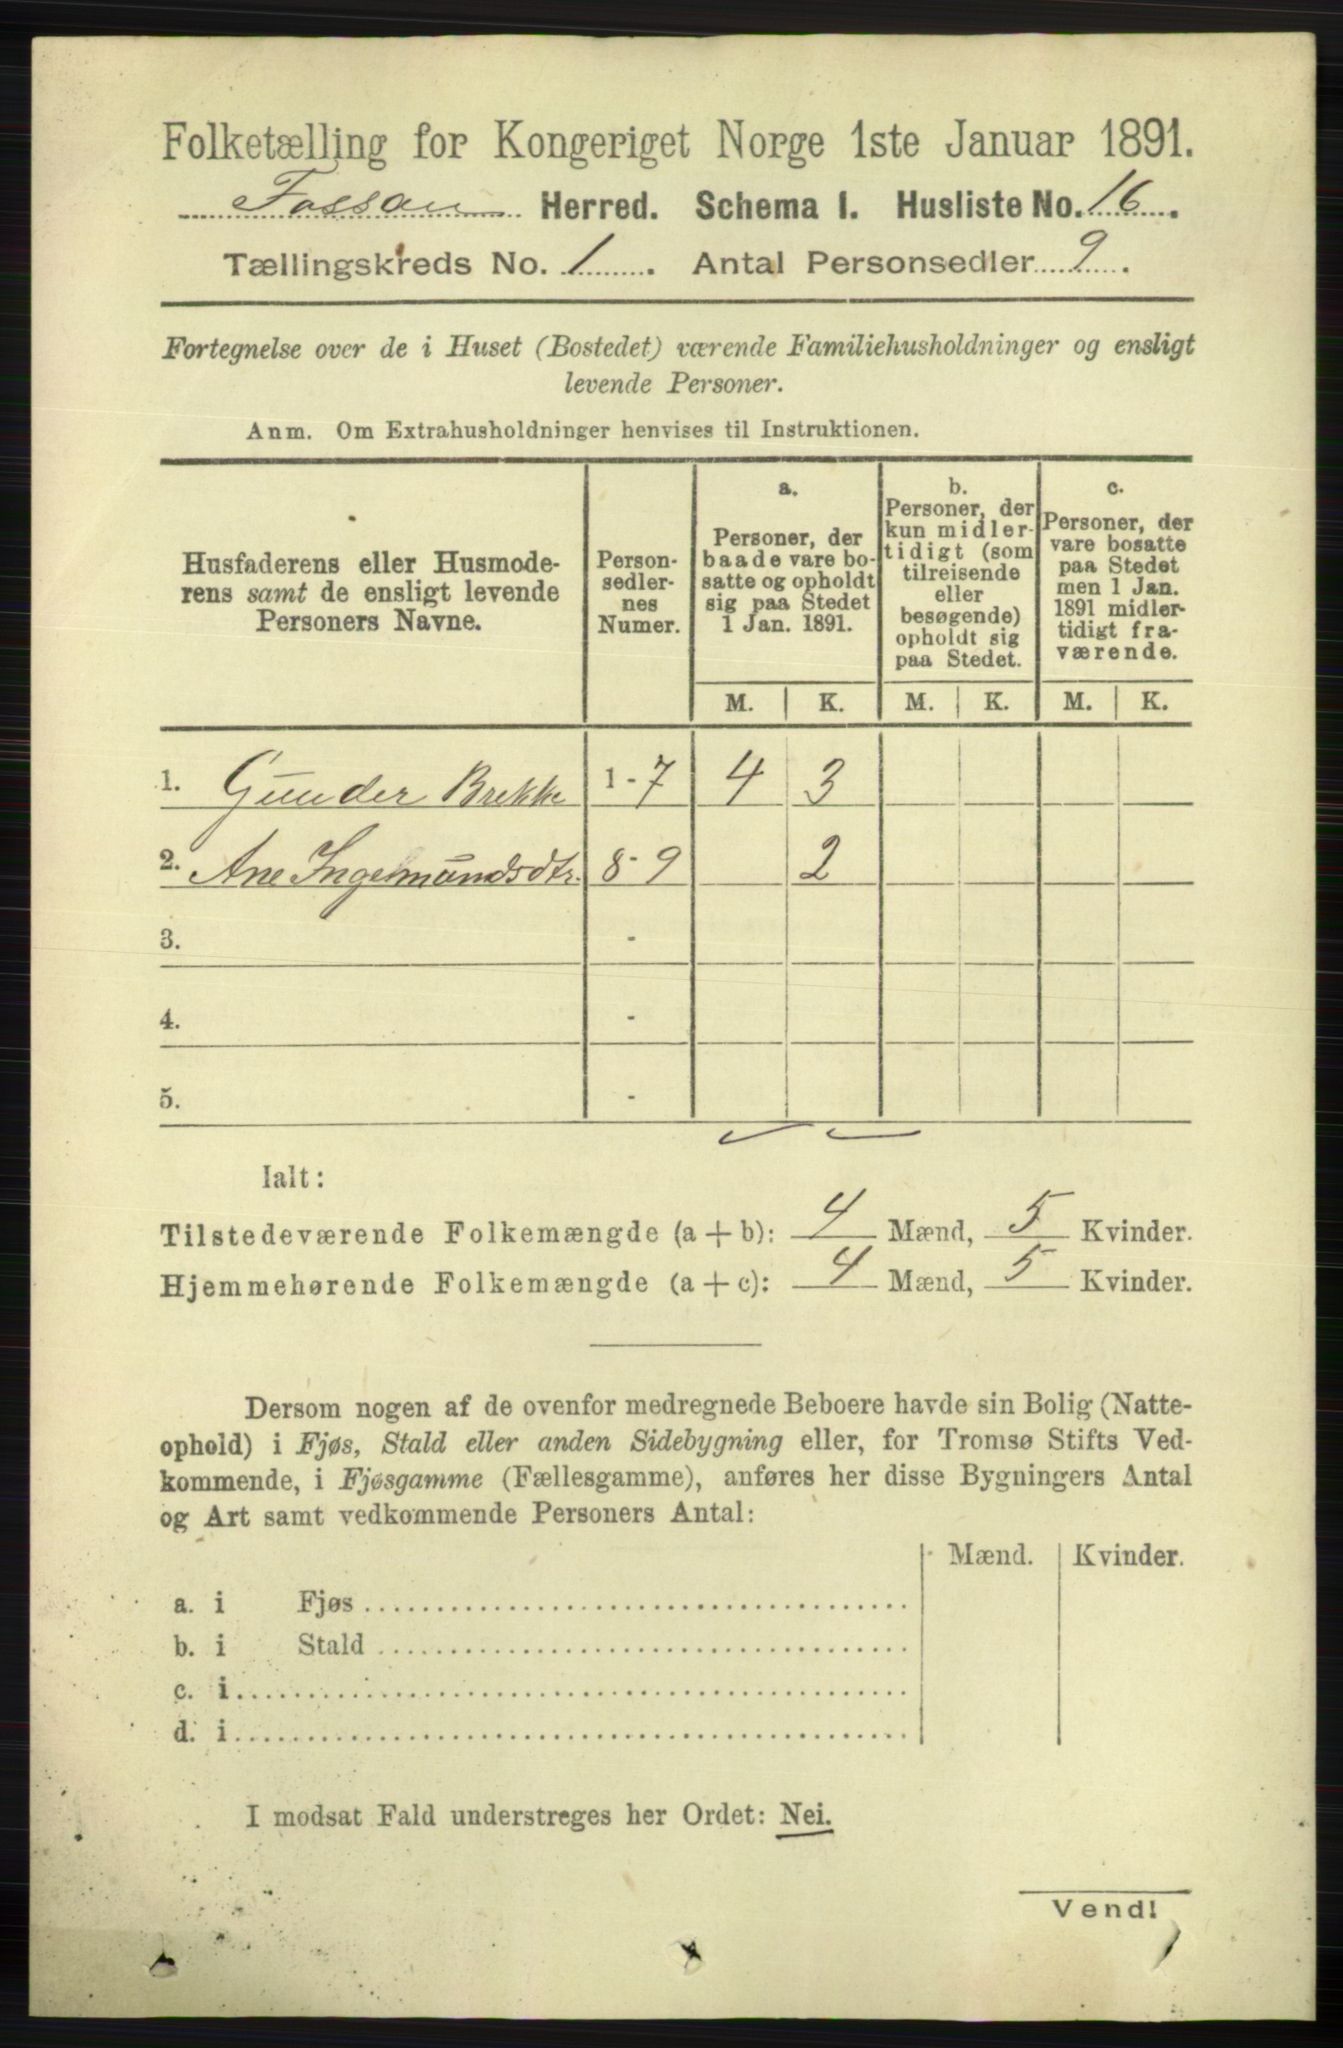 Folketælling for Kongeriget Norge 1ste Januar 1891.
Fossan Herred. Schema I. Husliste No. 16.
Tællingskreds No. 1. Antal Personsedler 9.
Fortegnelse over de i Huset (Bostedet) værende Familiehusholdninger og ensligt
levende Personer.
Anm. Om Extrahusholdninger henvises til Instruktionen.
Husfaderens eller Husmode-
rens samt de ensligt levende
Personers Navne.
Person-
sedler-
nes
Numer.
a.
Personer, der
baade vare bo-
satte og opholdt
sig paa Stedet
1 Jan. 1891.
b.
Personer, der
kun midler-
tidigt (som
tilreisende
eller
besøgende)
opholdt sig
paa Stedet.
c.
Personer, der
vare bosatte
paa Stedet
men 1 Jan.
1891 midler-
tidigt fra-
værende.
M. K. M. K. M. K.
1. Gunder Brekke 1-7 4 3
2. Ane Ingelmundsdtr. 8-9 2
3. -
4. -
5. -
Ialt:
Tilstedeværende Folkemængde (a + b): 4 Mænd, 5 Kvinder.
Hjemmehørende Folkemængde (a + c): 4 Mænd, 5 Kvinder.
Dersom nogen af de ovenfor medregnede Beboere havde sin Bolig (Natte-
ophold) i Fjøs, Stald eller anden Sidebygning eller, for Tromsø Stifts Ved-
kommende, i Fjøsgamme (Fællesgamme), anføres her disse Bygningers Antal
og Art samt vedkommende Personers Antal:
Mænd. Kvinder.
a. i Fjøs
b. i Stald
c. i
d. i
I modsat Fald understreges her Ordet: Nei.
Vend!